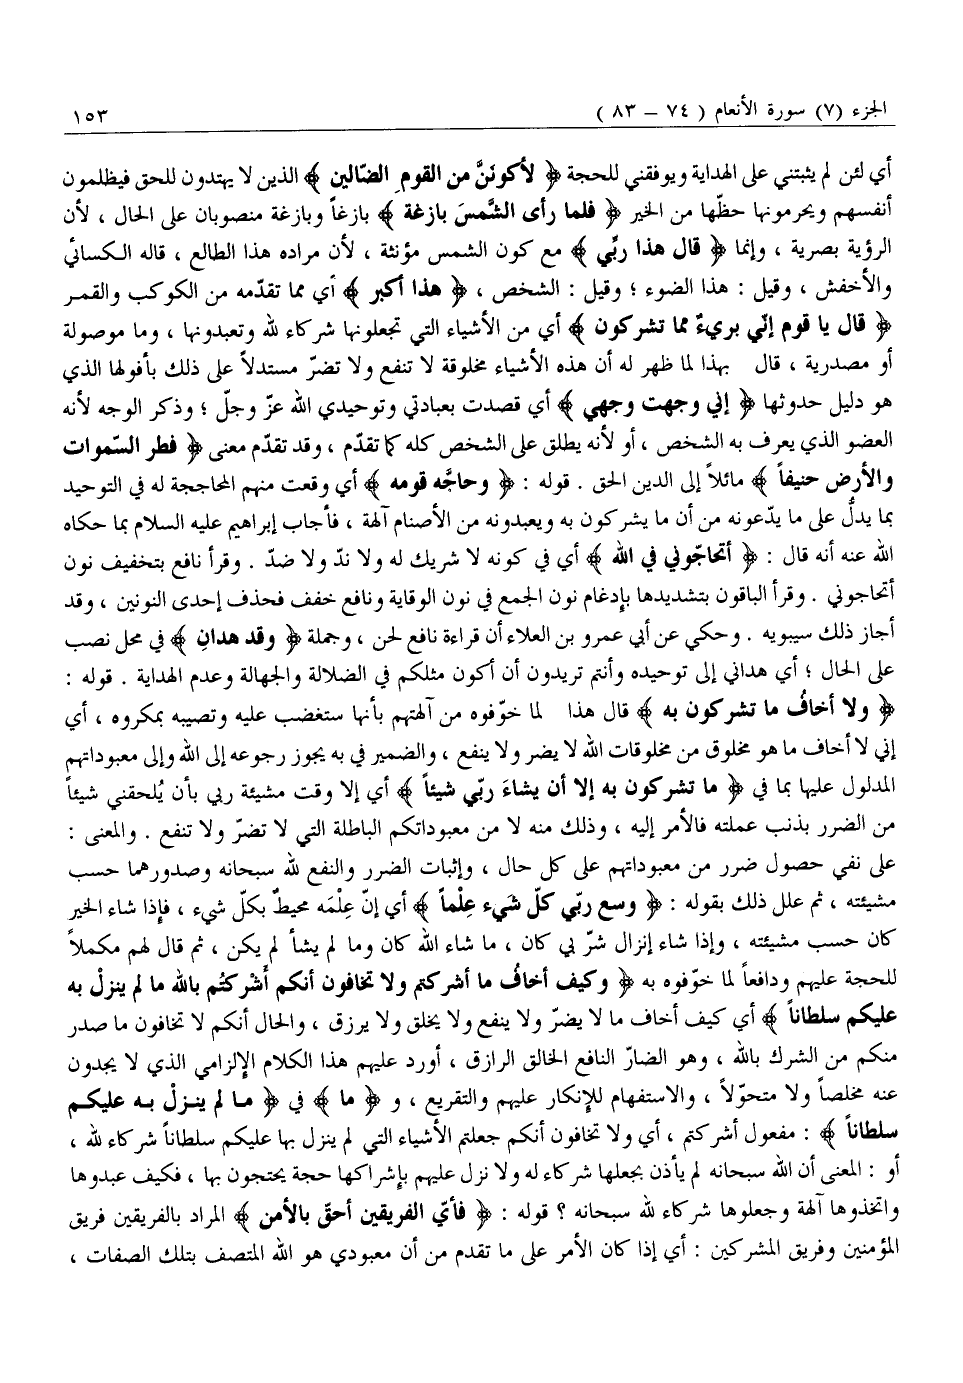 الجزء (٧) سورة الأنعام ( ٧٤ – ٨٣ ) ١٥٣
أي لئن لم يثبتني على الهداية ويوفقني للحجة ﴿ لأكونَنَّ من القومِ الضّالين ﴾ الذين لا يهتدون للحق فيظلمون
أنفسهم ويحرمونها حظّها من الخير ﴿ فلما رأى الشَّمسَ بازغة ﴾ بازغاً وبازغة منصوبان على الحال ، لأن
الرؤية بصرية ، وإنما ﴿ قال هذا ربّي ﴾ مع كون الشمس مؤنثة ، لأن مراده هذا الطالع ، قاله الكسائي
والأخفش ، وقيل : هذا الضوء ؛ وقيل : الشخص ، ﴿ هذا أكبر ﴾ أي مما تقدّمه من الكوكب والقمر
﴿ قال يا قوم إنّي بريءٌ مما تشركون ﴾ أي من الأشياء التي تجعلونها شركاء لله وتعبدونها ، وما موصولة
أو مصدرية ، قال بهذا لما ظهر له أن هذه الأشياء مخلوقة لا تنفع ولا تضرّ مستدلاً على ذلك بأفولها الذي
هو دليل حدوثها ﴿ إني وجهت وجهي ﴾ أي قصدت بعبادتي وتوحيدي الله عزّ وجلّ ؛ وذكر الوجه لأنه
العضو الذي يعرف به الشخص ، أو لأنه يطلق على الشخص كله كما تقدّم ، وقد تقدّم معنى ﴿ فطر السّموات
والأرض حنيفاً ﴾ مائلاً إلى الدين الحق . قوله : ﴿ وحاجَّه قومه ﴾ أي وقعت منهم المحاججة له في التوحيد
بما يدلُّ على ما يدّعونه من أن ما يشركون به ويعبدونه من الأصنام آلهة ، فأجاب إبراهيم عليه السلام بما حكاه
الله عنه أنه قال : ﴿ أتحاجّوني في الله ﴾ أي في كونه لا شريك له ولا ندّ ولا ضدّ . وقرأ نافع بتخفيف نون
أتحاجوني . وقرأ الباقون بتشديدها بإدغام نون الجمع في نون الوقاية ونافع خفف فحذف إحدى النونين ، وقد
أجاز ذلك سيبويه . وحكي عن أبي عمرو بن العلاء أن قراءة نافع لحن ، وجملة ﴿ وقد هدانِ ﴾ في محل نصب
على الحال ؛ أي هداني إلى توحيده وأنتم تريدون أن أكون مثلكم في الضلالة والجهالة وعدم الهداية . قوله :
﴿ ولا أخافُ ما تشركون به ﴾ قال هذا لما خوّفوه من آلهتهم بأنها ستغضب عليه وتصيبه بمكروه ، أي
إني لا أخاف ما هو مخلوق من مخلوقات الله لا يضر ولا ينفع ، والضمير في به يجوز رجوعه إلى الله وإلى معبوداتهم
المدلول عليها بما في ﴿ ما تشركون به إلا أن يشاءَ ربّي شيئاً ﴾ أي إلا وقت مشيئة ربي بأن يُلحقني شيئاً
من الضرر بذنب عملته فالأمر إليه ، وذلك منه لا من معبوداتكم الباطلة التي لا تضرّ ولا تنفع . والمعنى :
على نفي حصول ضرر من معبوداتهم على كل حال ، وإثبات الضرر والنفع لله سبحانه وصدورهما حسب
مشيئته ، ثم علل ذلك بقوله : ﴿ وسع ربّي كلّ شَيء عِلْماً ﴾ أي إنّ عِلْمَه محيطٌ بكلّ شيء ، فإذا شاء الخير
كان حسب مشيئته ، وإذا شاء إنزال شرّ بي كان ، ما شاء الله كان وما لم يشأ لم يكن ، ثم قال لهم مكملاً
للحجة عليهم ودافعاً لما خوّفوه به ﴿ وكيف أخافُ ما أشركتم ولا تخافون أنكم أَشْركتُم بالله ما لم ينزلْ به
عليكم سلطاناً ﴾ أي كيف أخاف ما لا يضرّ ولا ينفع ولا يخلق ولا يرزق ، والحال أنكم لا تخافون ما صدر
منكم من الشرك بالله ، وهو الضارّ النافع الخالق الرازق ، أورد عليهم هذا الكلام الإلزامي الذي لا يجدون
عنه مخلصاً ولا متحوّلاً ، والاستفهام للإنكار عليهم والتقريع ، و ﴿ ما ﴾ في ﴿ ما لم ينزلْ به عليكم
سلطاناً ﴾ : مفعول أشركتم ، أي ولا تخافون أنكم جعلتم الأشياء التي لم ينزل بها عليكم سلطاناً شركاء لله ،
أو : المعنى أن الله سبحانه لم يأذن بجعلها شركاء له ولا نزل عليهم بإشراكها حجة يحتجون بها ، فكيف عبدوها
واتخذوها آلهة وجعلوها شركاء لله سبحانه ؟ قوله : ﴿ فأيّ الفريقين أحقّ بالأمن ﴾ المراد بالفريقين فريق
المؤمنين وفريق المشركين : أي إذا كان الأمر على ما تقدم من أن معبودي هو الله المتصف بتلك الصفات ،